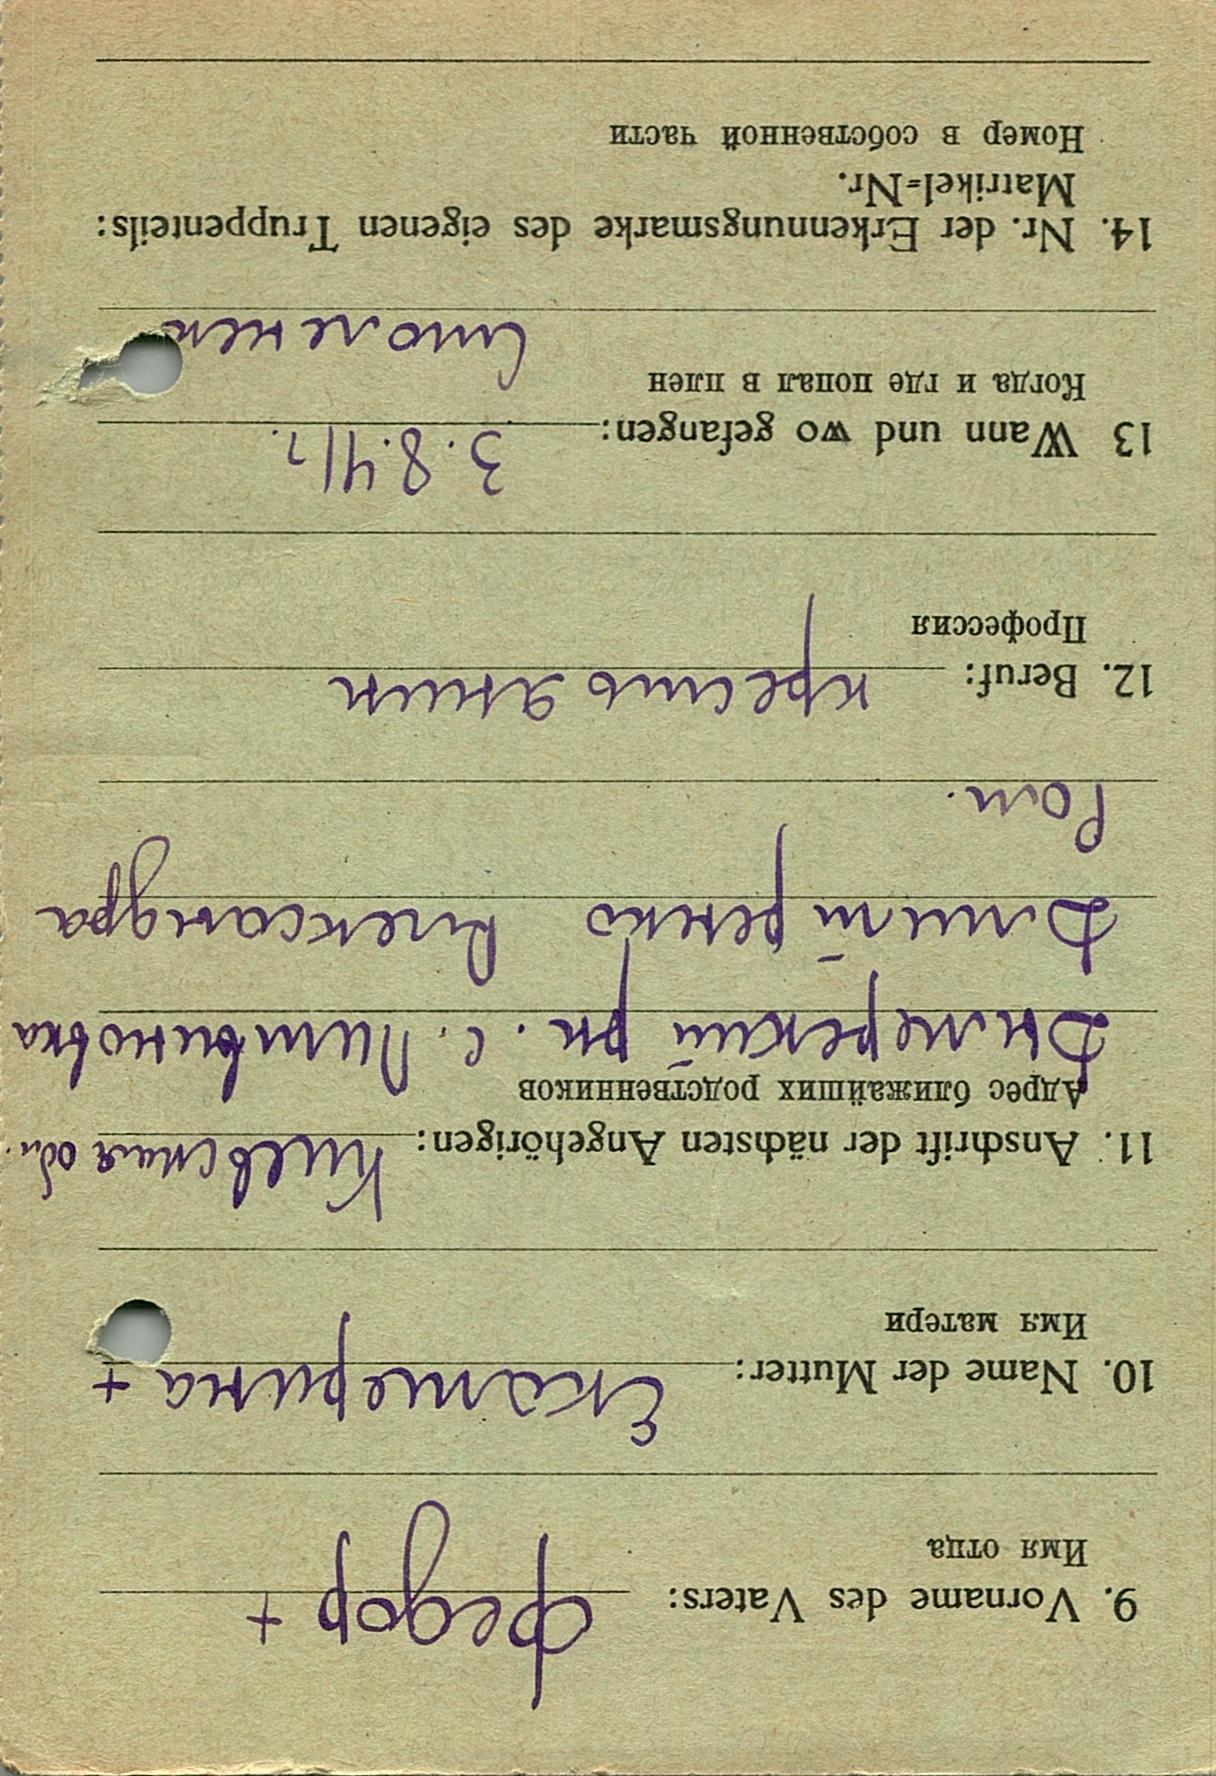 9. Vorname des Vaters: Федор +
Имя отца
10. Name der Mutter: Екатерина +
Имя матери
11. Anschrift der nächsten Angehörigen: Киевская обл.
Адрес ближайших родственников
Дымерский рн. с. Литвиновка
Дмитренко Александра
Рот.
12. Beruf: крестьянин
Профессия
13 Wann und wo gefangen: 3.8.41г.
Когда и где попал в плен
Смоленск
14. Nr. der Erkennungsmarke des eigenen Truppenteils:
Matrikel=Nr.
Номер в собственной части